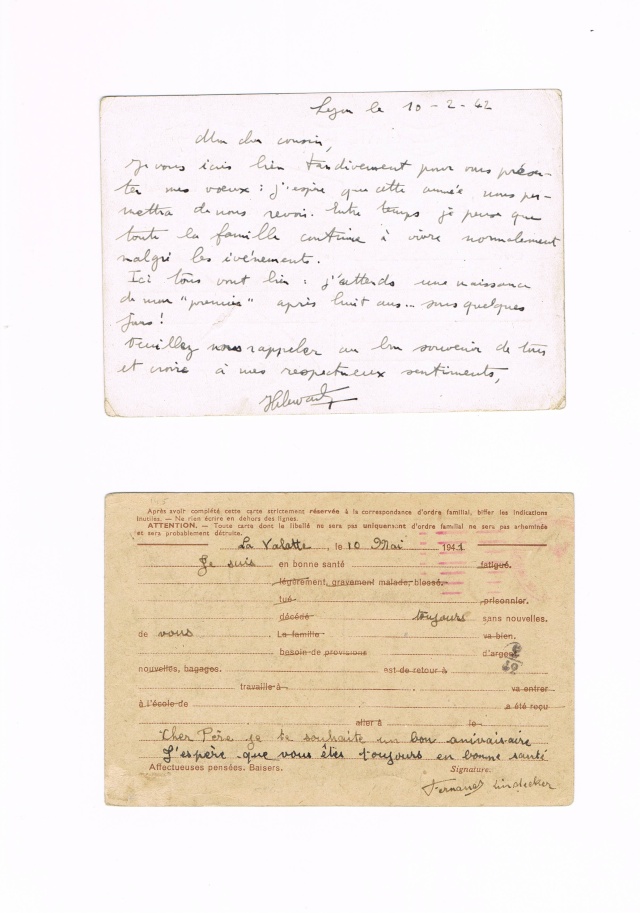 Lyon le 10-2-42
Mon cher cousin,
Je vous écris bien tardivement pour vous présen-
ter mes vœux : j'espère que cette année nous per-
mettra de nous revoir. Entre temps je pense que
toute la famille continue à vivre normalement
malgré les événements.
Ici tous vont bien : j'attends une naissance
de mon "premier" après huit ans... sous quelques
jours !
Veuillez nous rappeler au bon souvenir de tous
et croire à mes respectueux sentiments,
Après avoir complété cette carte strictement réservée à la correspondance d'ordre familial, biffer les indications
inutiles. — Ne rien écrire en dehors des lignes.
ATTENTION. — Toute carte dont le libellé ne sera pas uniquement d'ordre familial ne sera pas acheminée
et sera probablement détruite.
La Valette, le 10 Mai 1941
Je suis en bonne santé fatigué.
légèrement, gravement malade, blessé.
tué prisonnier.
décédé toujours sans nouvelles.
de vous La famille va bien.
besoin de provisions d'argent
nouvelles, bagages. est de retour à
travaille à va entrer
à l'école de a été reçu
aller à le
Cher Père je te souhaite un bon anivaisaire
J'espère que vous êtes toujours en bonne santé
Affectueuses pensées. Baisers. Signature.
Fernand